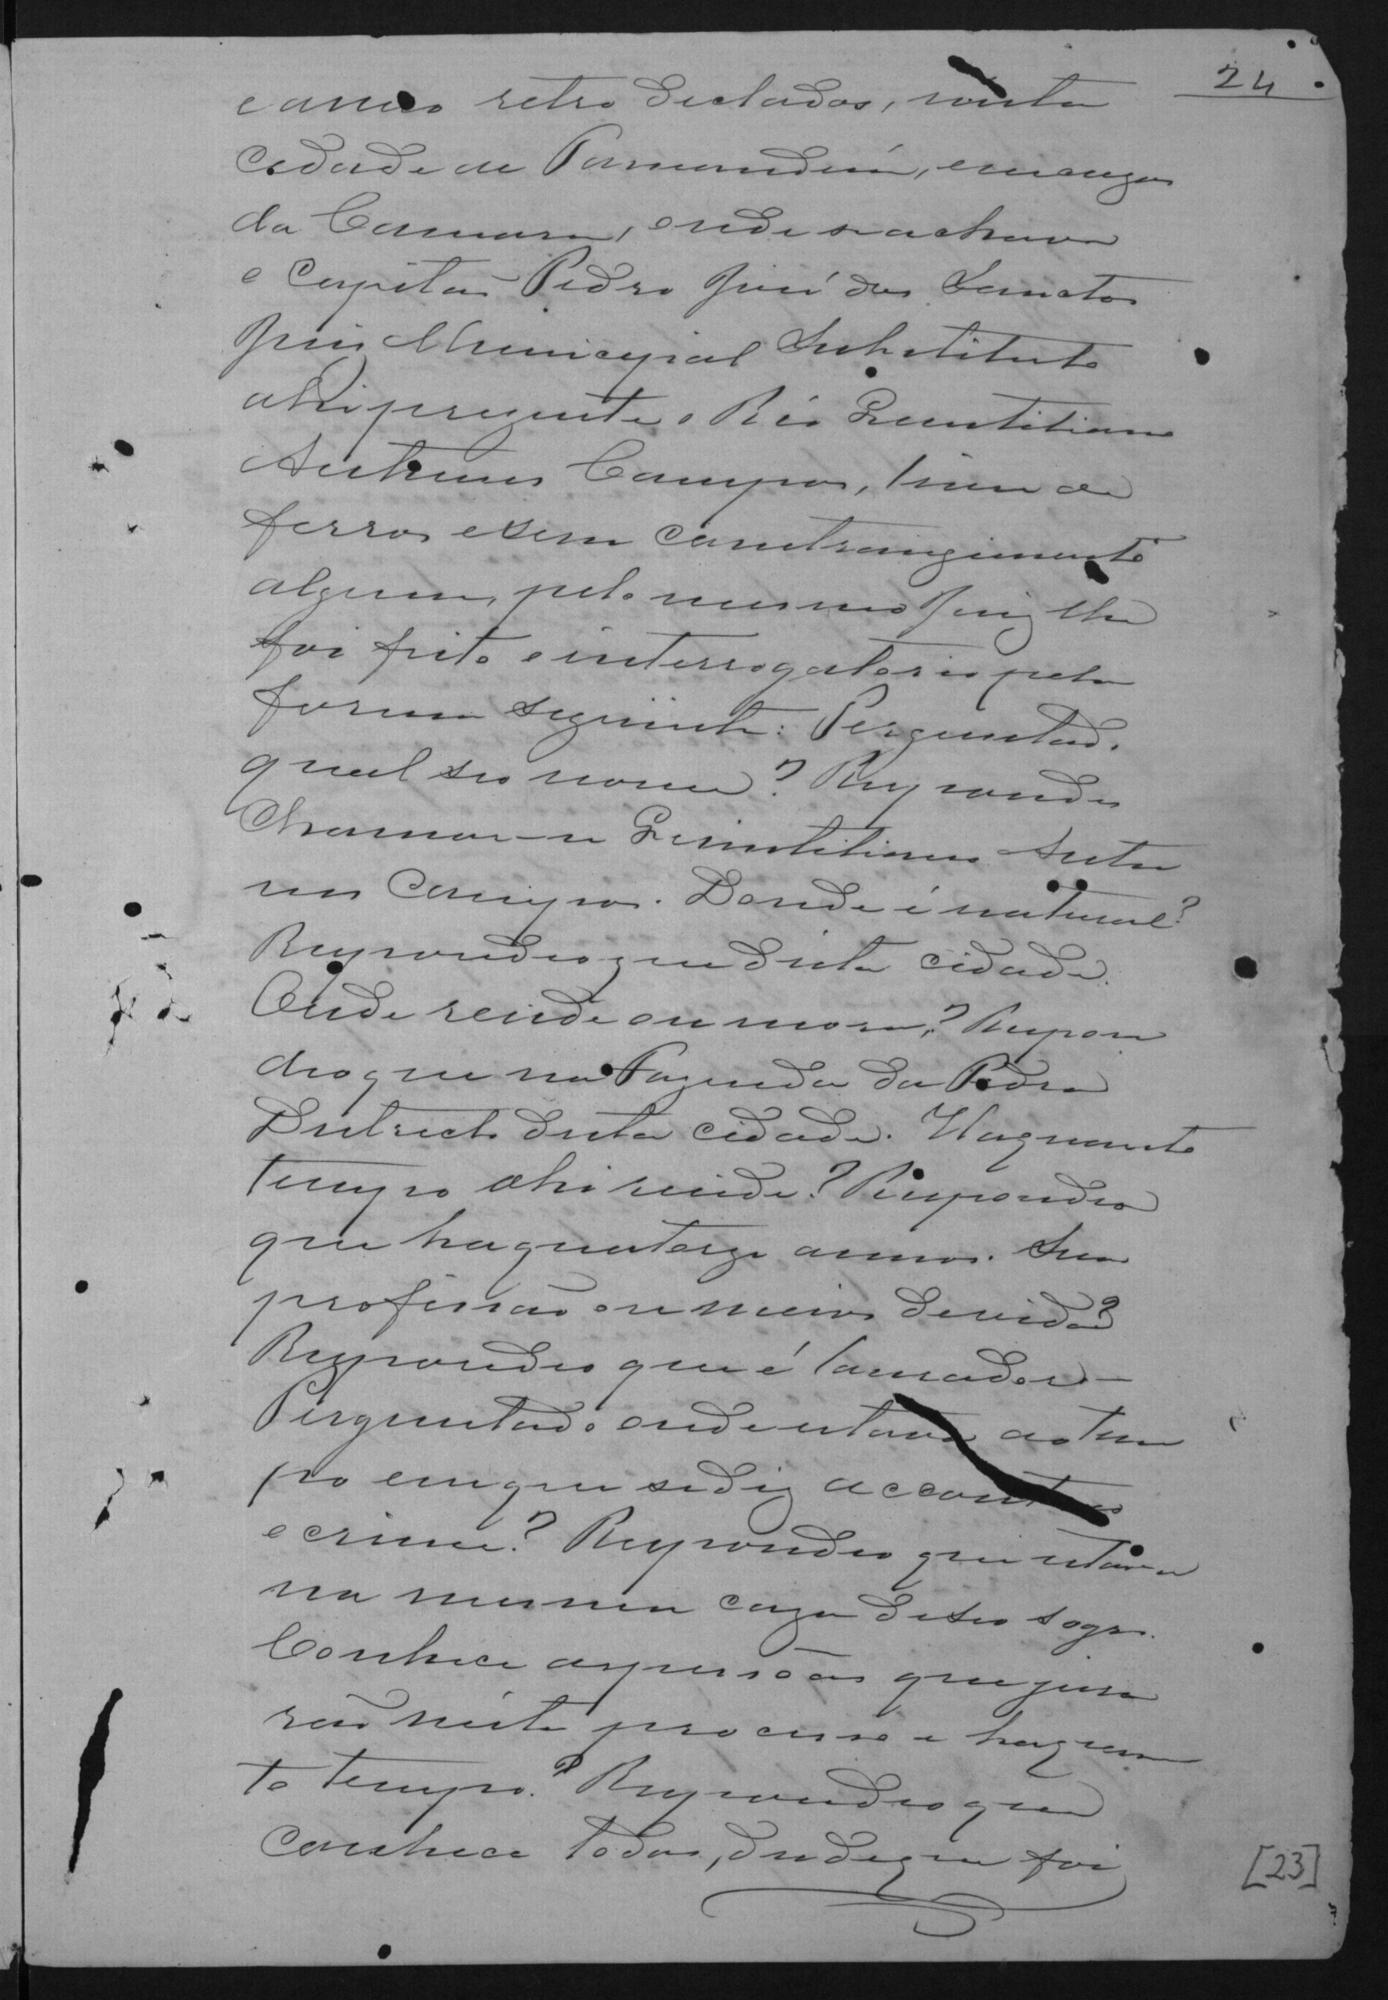 24
e anno retro declados, nesta
cidade de Parnandiua, em caza
da Camara, onde se achava
o Capitão Pedro José dos Sanctos
Juis Municipal Substituto
ahi prezente o Réo Quintiliano
Antunes Campos, livre de
ferros e sem constrangimento
algum, pelo mesmo Juiz lhe
foi feito o interrogatorio pela
forma seguinte: Perguntado
qual seo nome? Respondeo
Chamar-se Quintiliano Antu
nes Campos. Donde é natural?
Respondeo que desta cidade.
Onde reside ou mora? Respon
deo que na Fazenda da Pedra
destricto desta cidade. Ha quanto
tempo ahi reside? Respondeo
que ha quatorze annos. Sua
profissão ou meios de vida?
Respondeo que é lavrador -
Perguntado onde estava ao tem
po em que se diz acconteceo
o crime? Respondeo que estava
na mesma caza de seo sogro.
Conhece as pessôas que jura
rão néste processo e ha quan
to tempo? Respondeo que
conhece todas, desde que foi
[23]